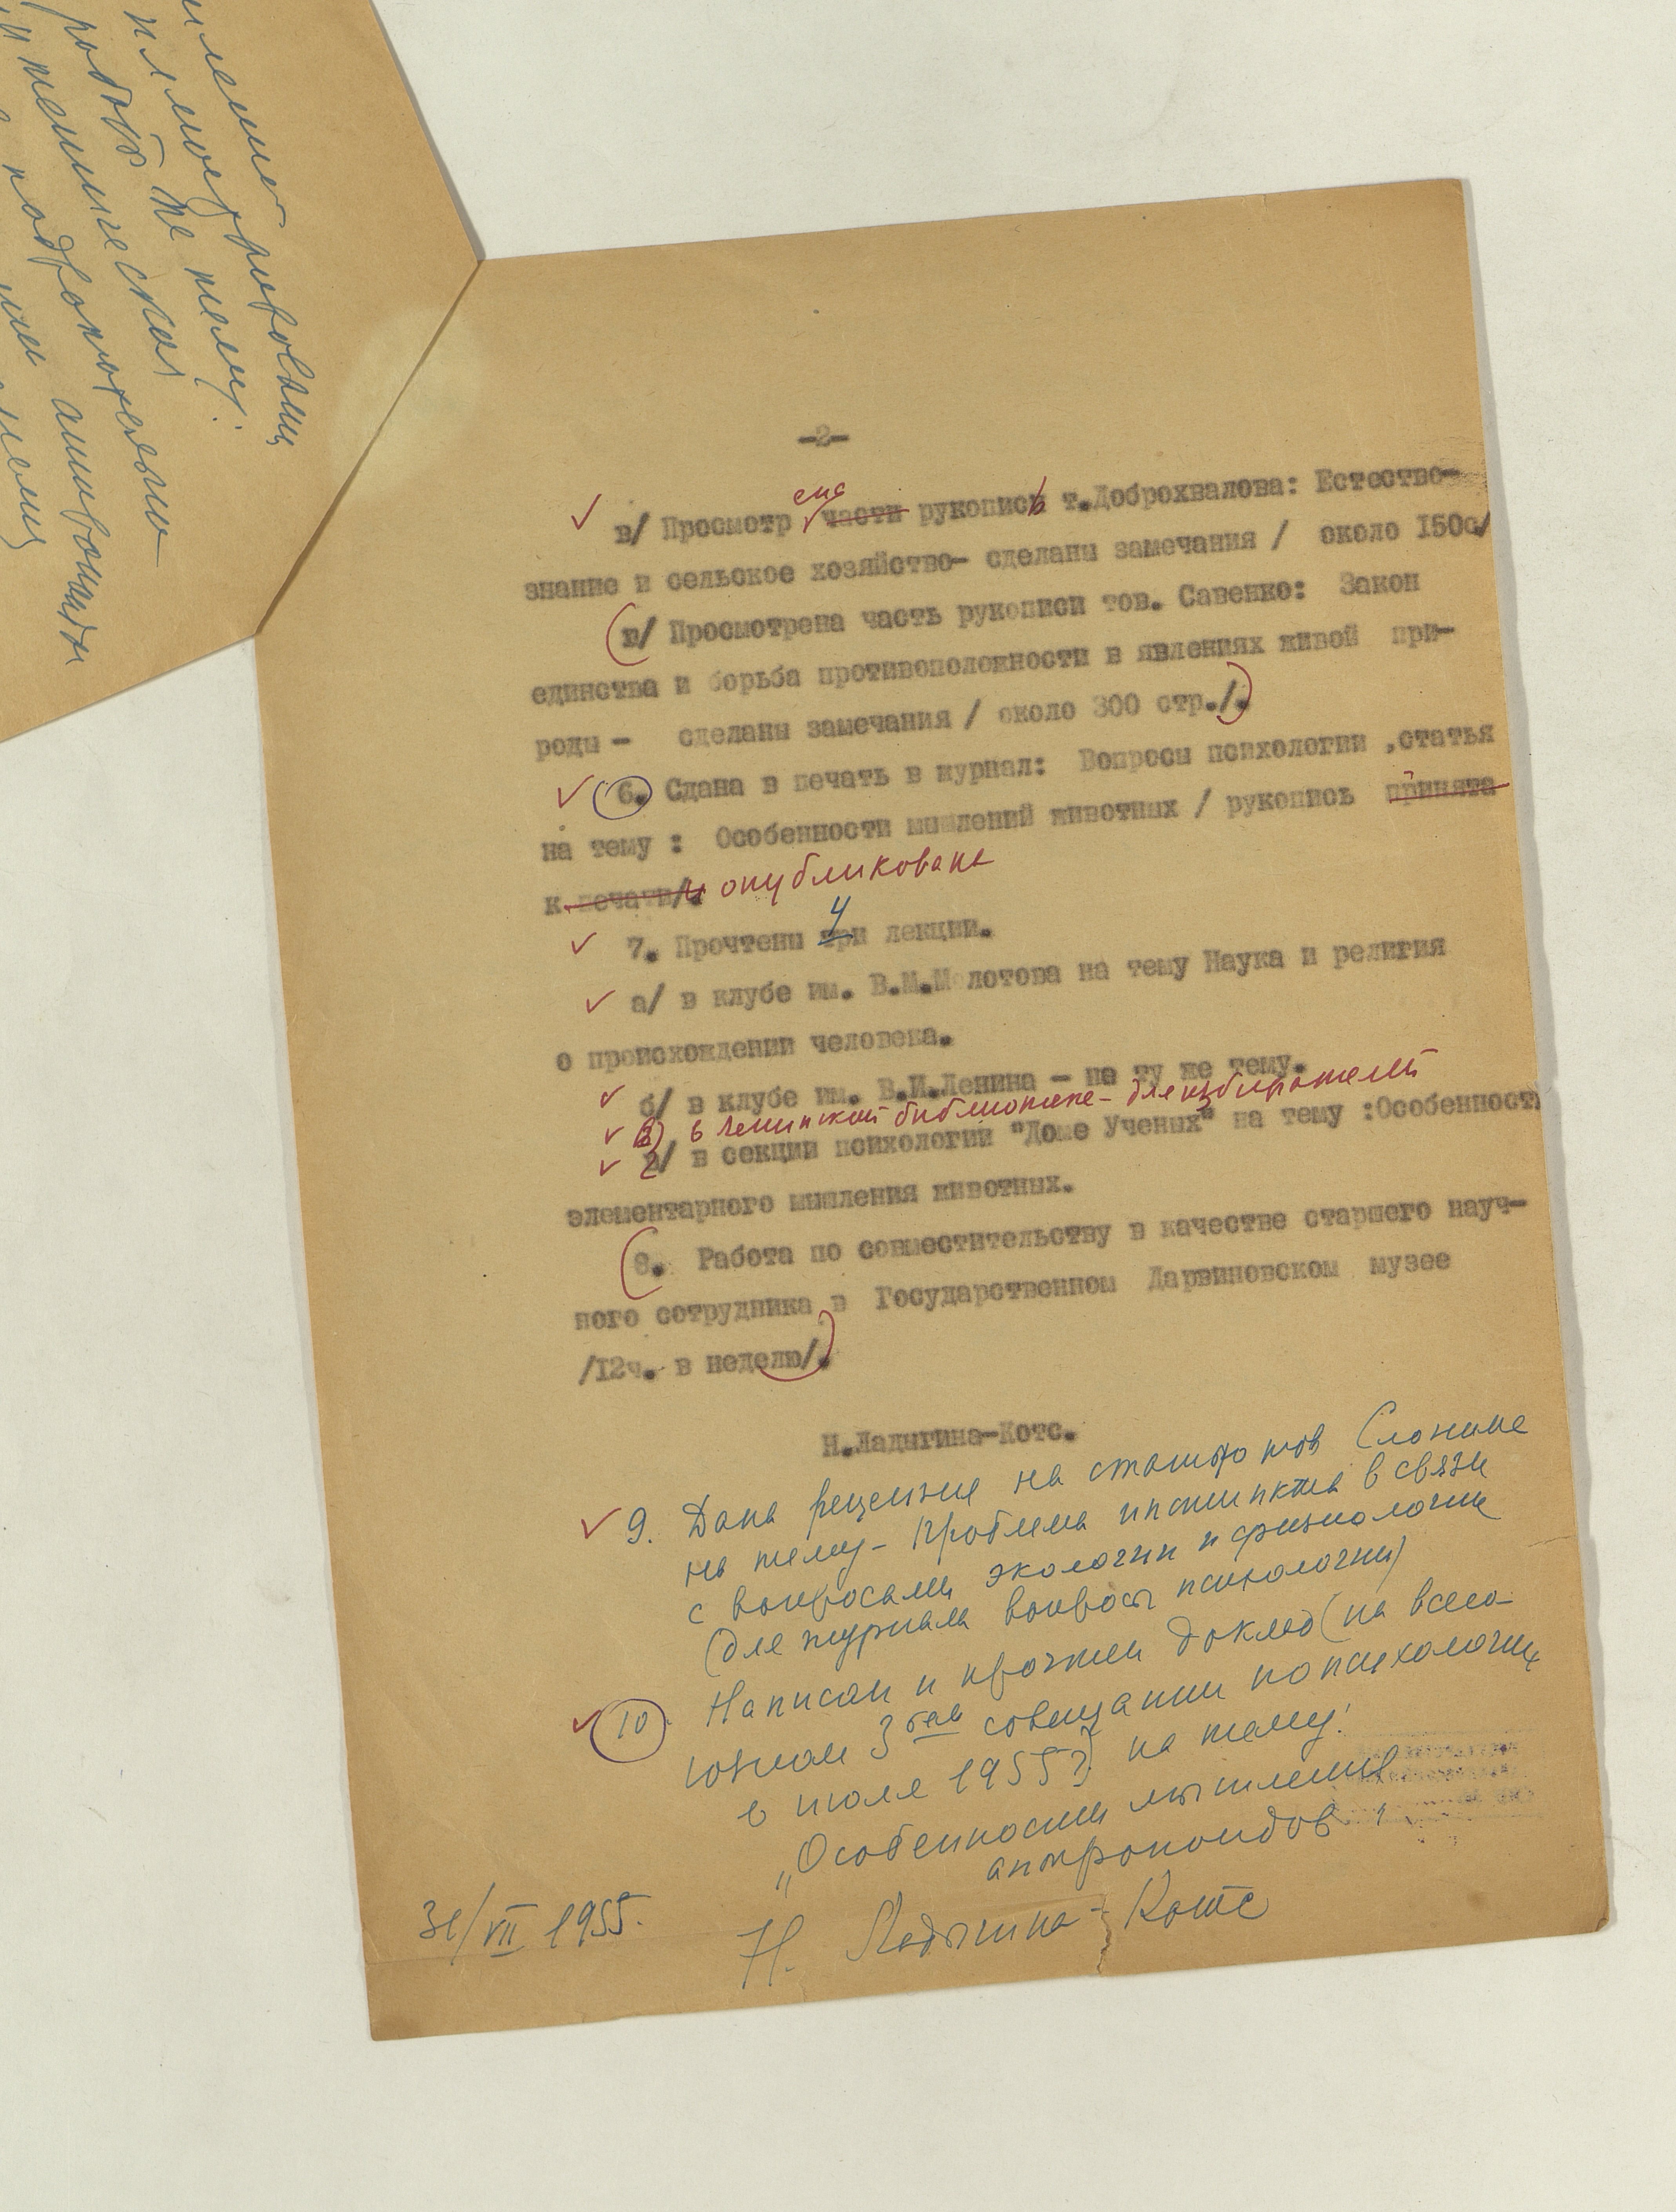 -2-
в/ Просмотр части рукописи т.Доброхвалова: Естество-
знание и сельское хозяйство- сделаны замечания / около 150с/
г/ Просмотрена часть рукописи тов. Савенко: Закон
единства и борьба противоположности в явлениях живой при-
роды - сделаны замечания / около 300 стр./.
6. Сдана в печать в журнал: Вопросы психологии ,статья
на тему : Особенности мышлений животных / рукопись принята
к печати/. и опубликована
4
7. Прочтены три лекции.
а/ в клубе им. В.М.Молотова на тему Наука и религия
о происхождении человека.
б/ в клубе им. В.И.Ленина - на ту же тему.
в) в Ленинской библиотеке - для избирателей
г/ в секции психологии "Доме Ученых" на тему :Особенност
элементарного мышления животных.
8. Работа по совместительству в качестве старшего науч-
ного сотрудника в Государственном Дарвиновском музее
/12ч. в неделю/.
Н.Ладыгина-Котс.
9. Дана рецензия на статью тов Слонима
на тему - Проблема инстинкта в связи
с вопросами экологии и физиологии
(для журнала вопросы психологии)
10. Написан и прочтен доклад (на всесо-
юзном 3ем совещании по психологии
в июле 1955 г) на тему:
„Особенности мышления
антропоидов"
31/VII 1955. Н. Ладыгина-Котс
работ
на тему: